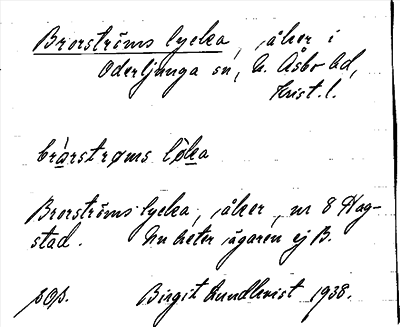 Brorströms lycka, åker i
Oderljunga sn, N. Åsbo hd,
Krist. l.
brárstrøms lø̀ka
Brorströms lycka, åker, nr 8 Hag-
stad. Nu heter ägaren ej B.
sop. Birgit Lundkvist 1938.